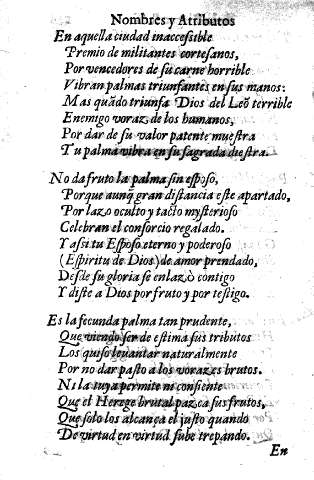 Nombres y Atributos
En aquella ciudad inaccessible
Premio de militantes cortesanos,
Por vencedores de su carne horrible
Vibran palmas triunfantes en sus manos:
Mas quãdo triunfa Dios del Leõ terrible
Enemigo voraz de los humanos,
Por dar de su valor patente muestra
Tu palma vibra en su sagrada diestra.
No da fruto la palma sin esposo,
Porque aunq̃ gran distancia este apartado,
Por lazo oculto y tacto mysterioso
Celebran el consorcio regalado.
Y assi tu Esposo eterno y poderoso
(Espiritu de Dios) de amor prendado,
Desde su gloria se enlazò contigo
Y diste a Dios por fruto y por testigo.
Es la fecunda palma tan prudente,
Que viendo ser de estima sus tributos
Los quiso leuantar naturalmente
Por no dar pasto a los vorazes brutos.
Ni la tuya permite ni consiente
Que el Herege brutal pazca sus frutos,
Que solo los alcança el justo quando
De virtud en virtud sube trepando.
En